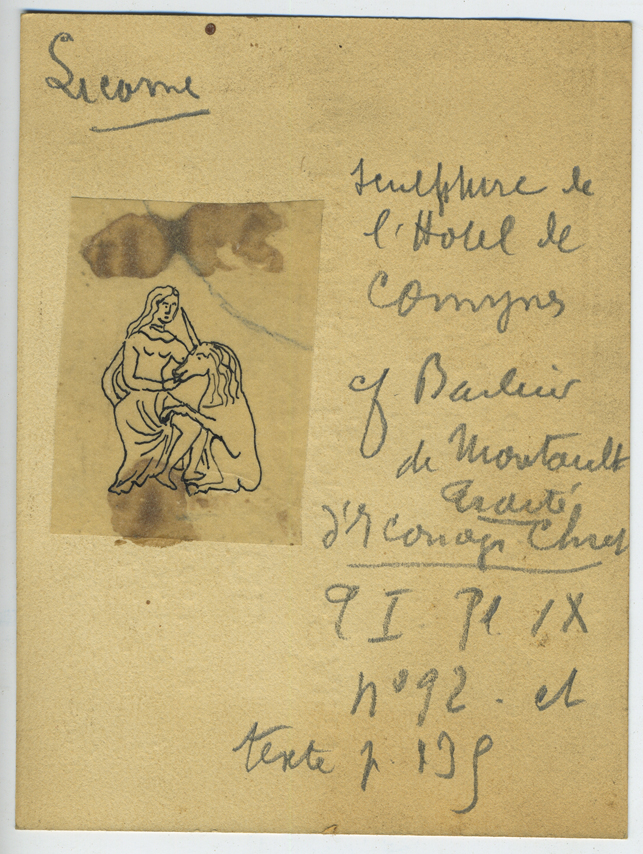 Licorne
sculpture de
l'Hotel de
Comynes
cf Barbier
de Montault
Traité
d'Iconogr Chret
T I Pl IX
n° 92 - et
texte p 139